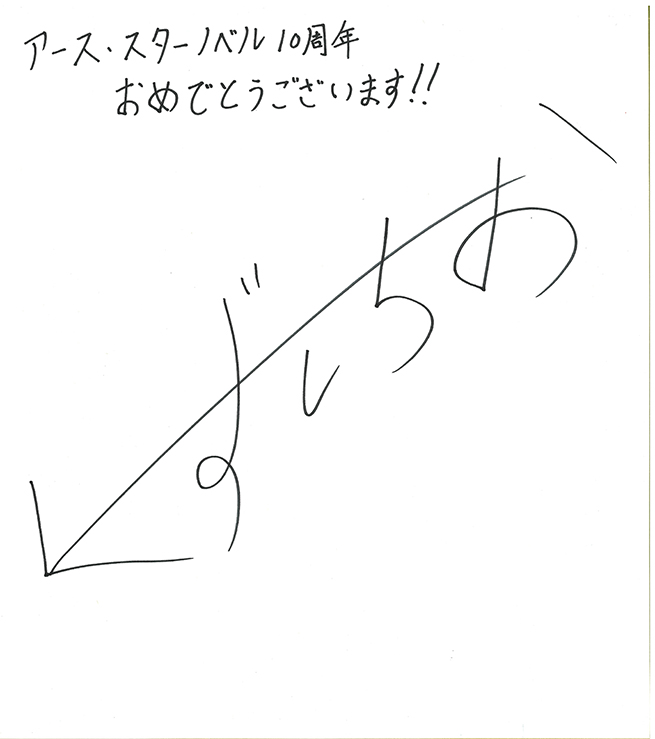 アース・スターノベル 10周年
おめでとうございます!!